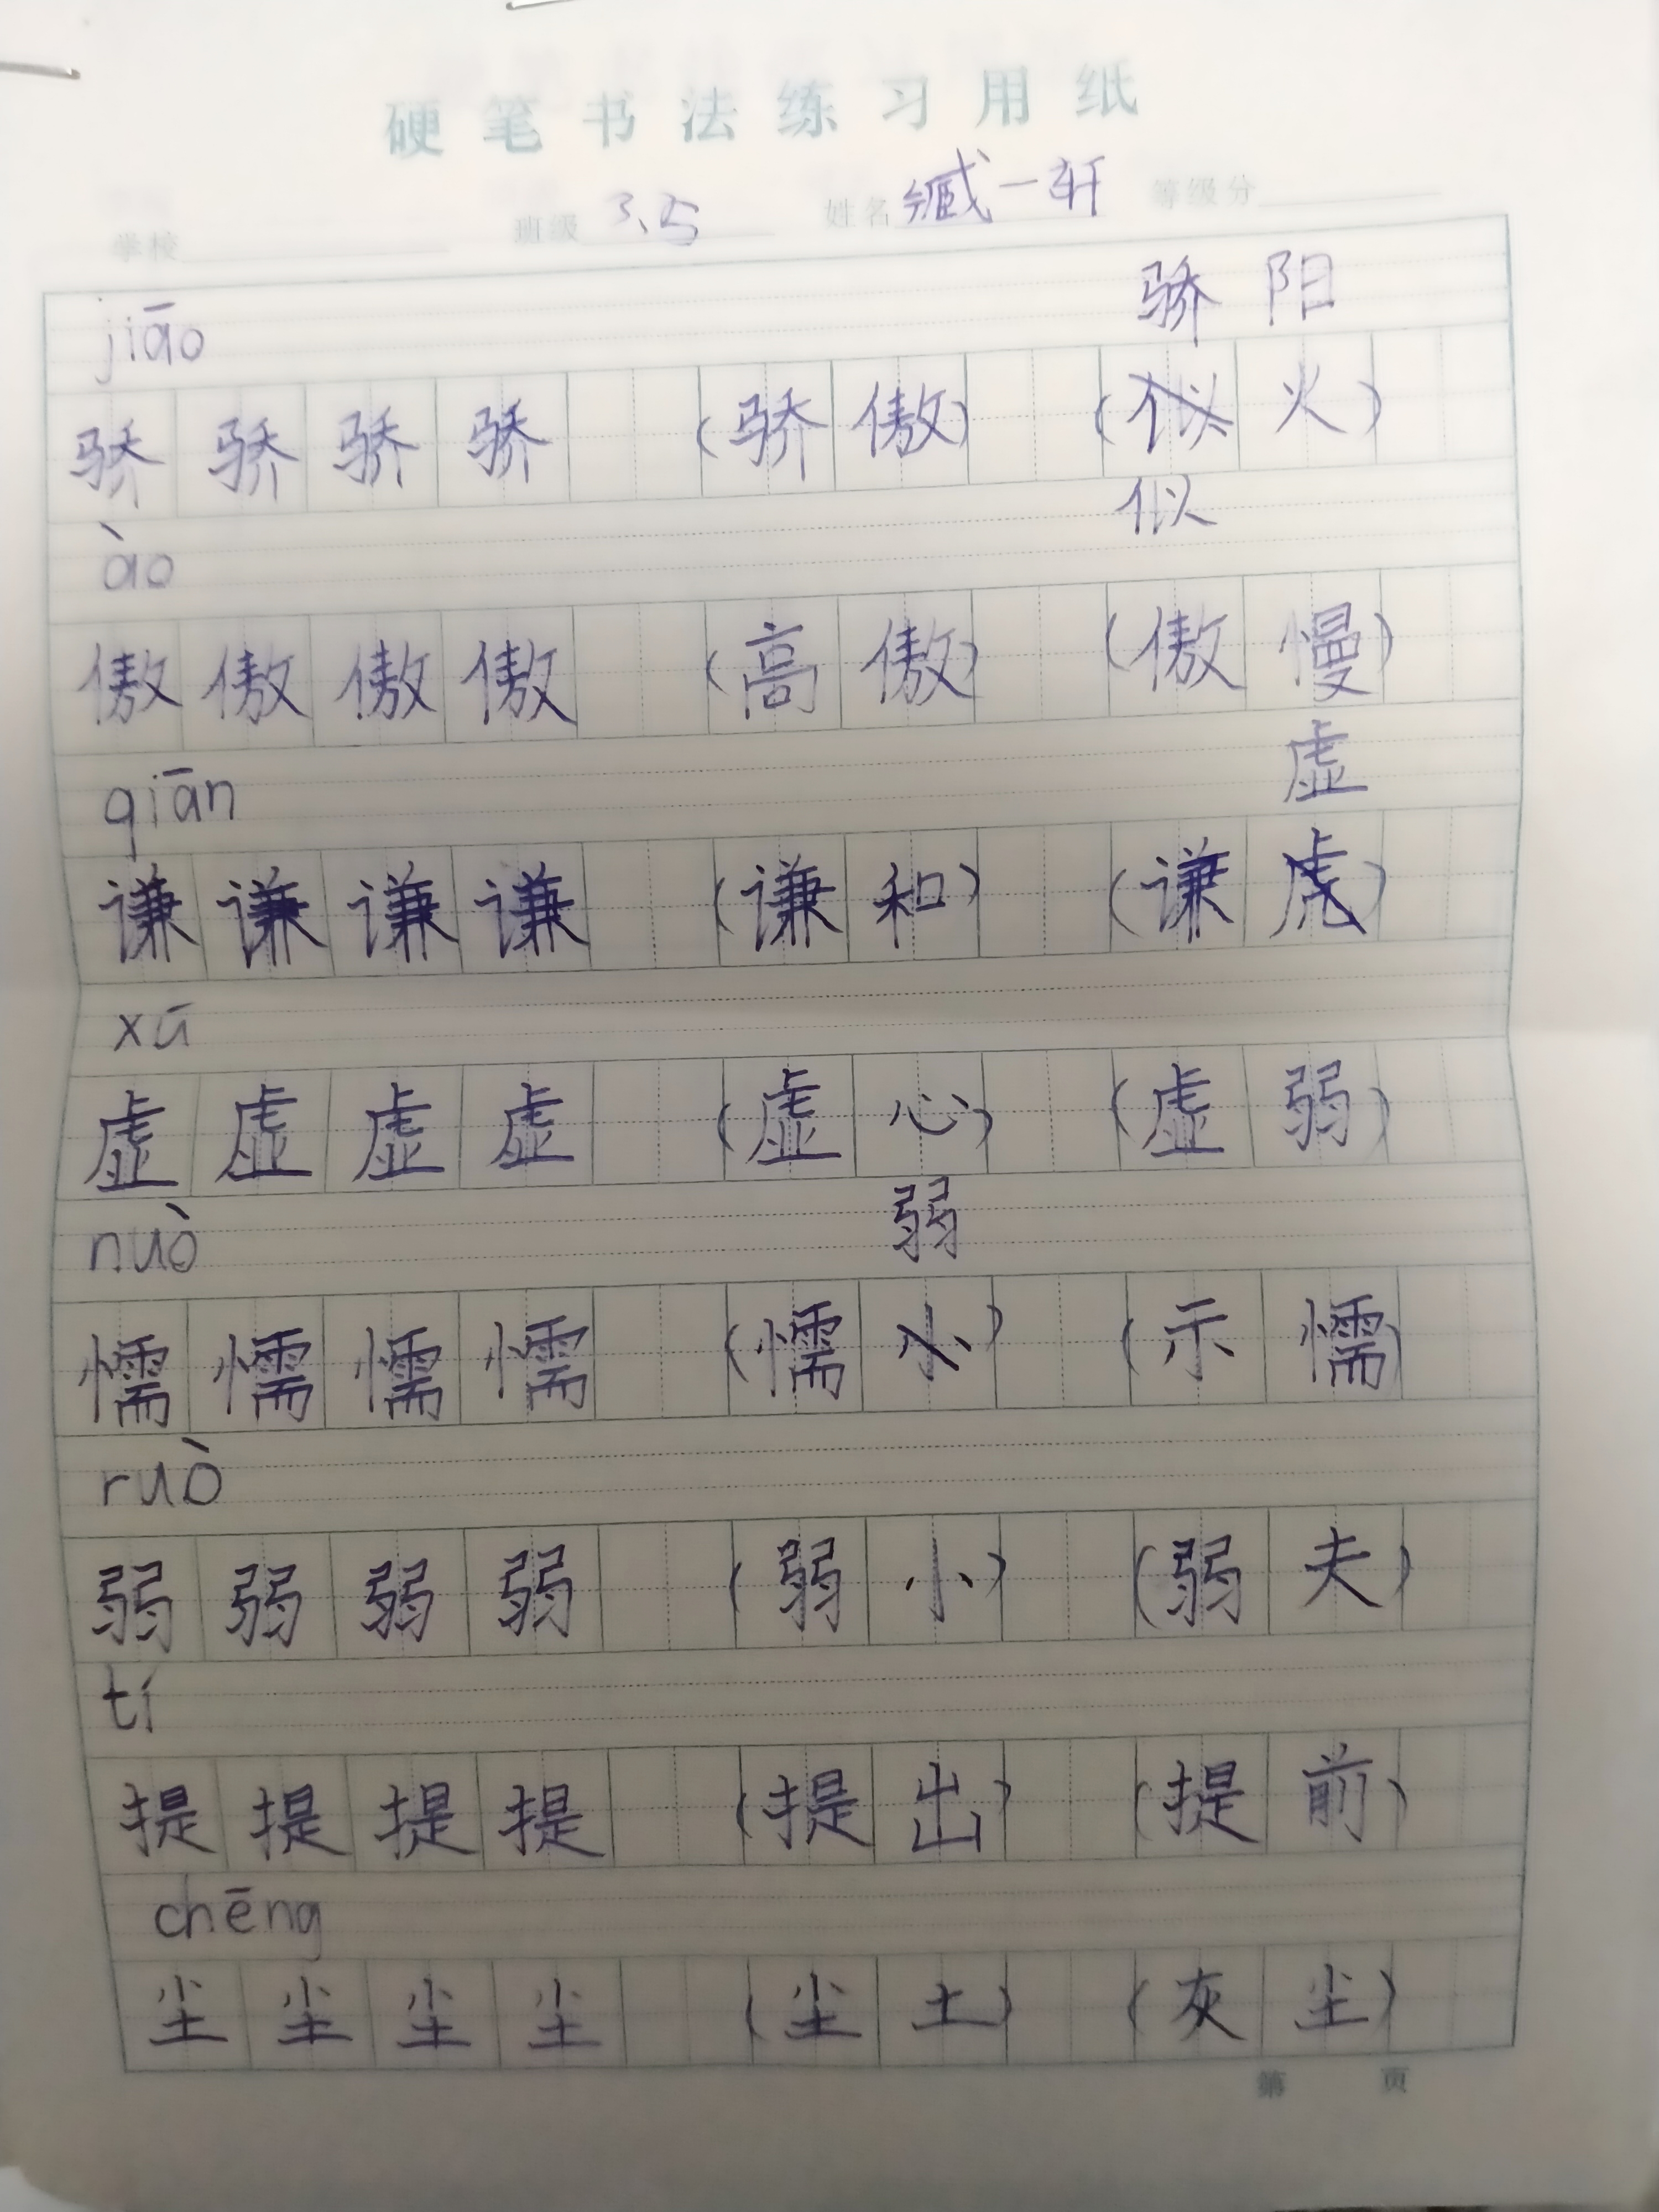 硬笔书法练习用纸
学校 班级 3.5 姓名 臧一轩 等级分
jiāo 骄阳
骄 骄 骄 骄 (骄傲) (似火)
ào 似
傲 傲 傲 傲 (高傲) (傲慢)
qiān 虚
谦 谦 谦 谦 (谦和) (谦虎)
xū
虚 虚 虚 虚 (虚心) (虚弱)
nuò 弱
懦 懦 懦 懦 (懦小) (示懦)
ruò
弱 弱 弱 弱 (弱小) (弱夫)
tí
提 提 提 提 (提出) (提前)
chēng
尘 尘 尘 尘 (尘土) (灰尘)
第 页